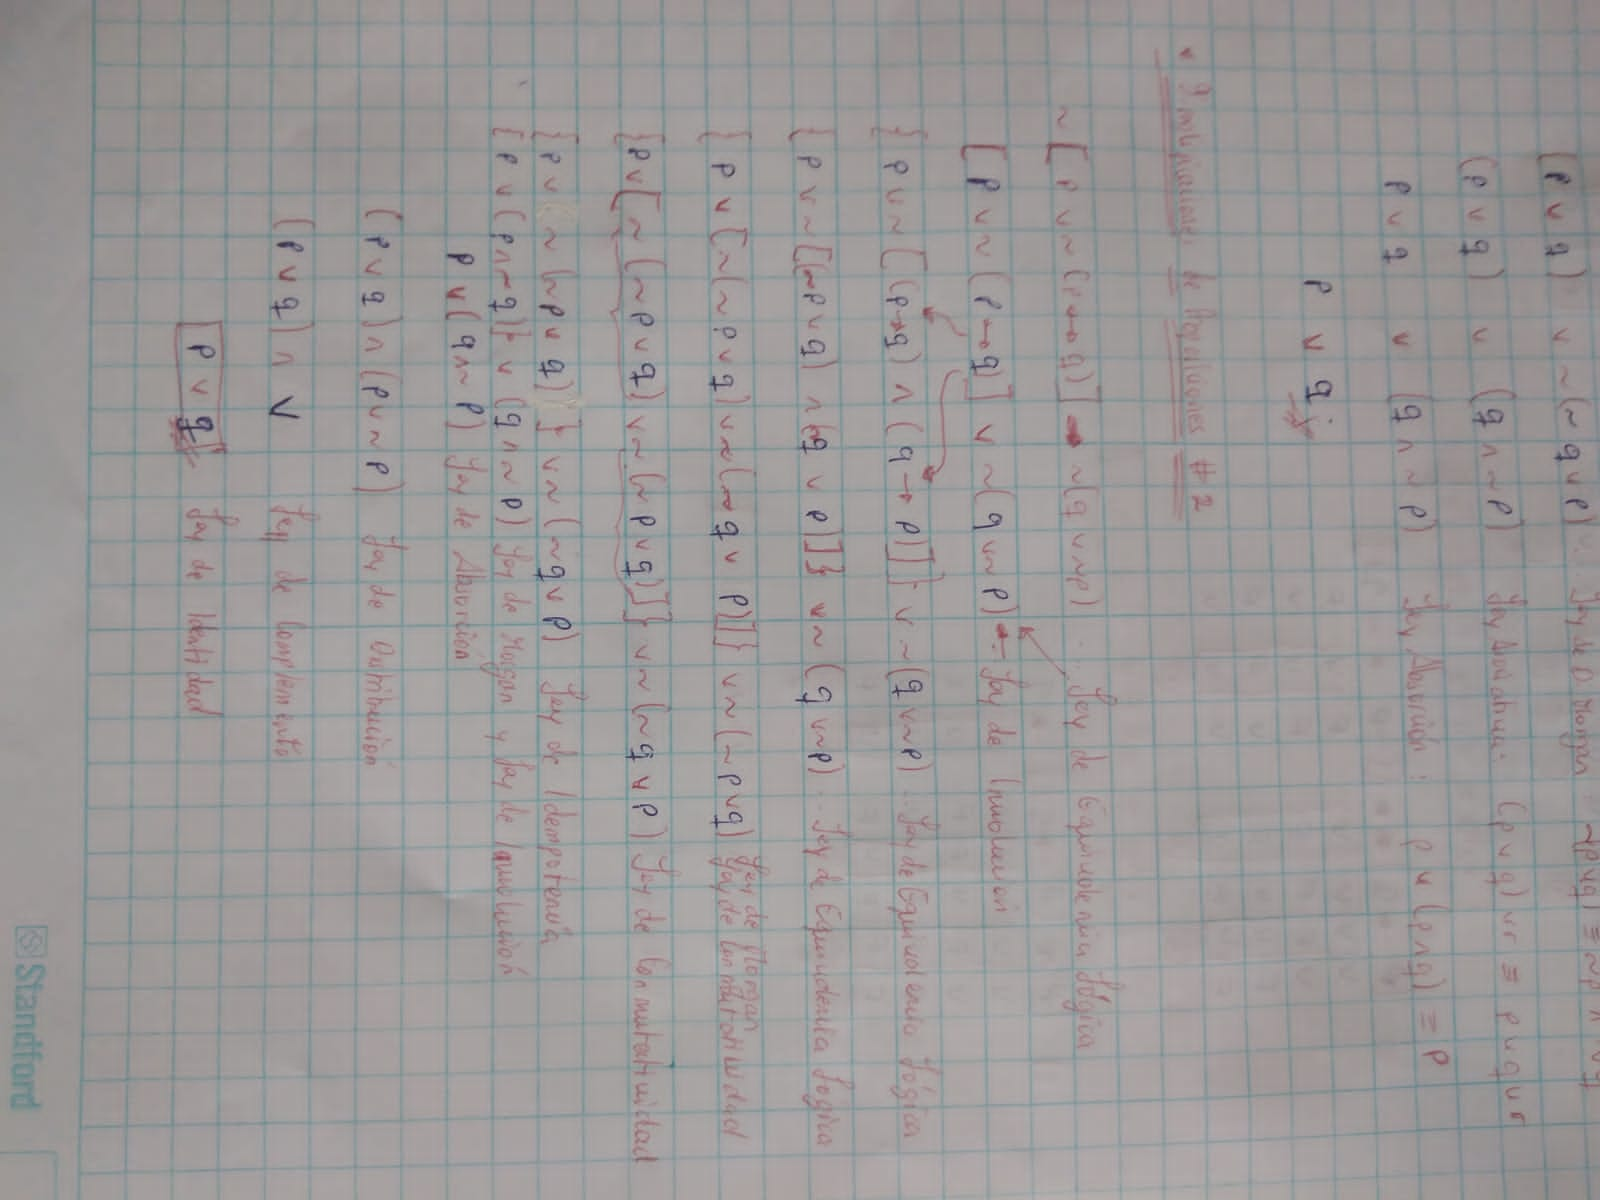 (p ∨ q) ∨ ~(~q ∨ p) Ley de D Morgan ~(p ∨ q) ≡ ~p ∧ ~q
(p ∨ q) ∨ (q ∧ ~p) Ley Asociativa: (p ∨ q) ∨ r ≡ p ∨ q ∨ r
p ∨ q ∨ (q ∧ ~p) Ley Absorción: p ∨ (p ∧ q) ≡ p
p ∨ q
de #2
~[p ∨ ~(p ↔ q)] → ~(q ∨ ~p) Ley de Equivalencia Lógica
[p ∨ ~(p ↔ q)] ∨ ~(q ∨ ~p) Ley de Involución
{p ∨ ~[(p → q) ∧ (q → p)]} ∨ ~(q ∨ ~p) Ley de Equivalencia Lógica
{p ∨ ~[(~p ∨ q) ∧ (q ∨ p)]} ∨ ~(q ∨ ~p) Ley de Equivalencia Lógica
{p ∨ [~(~p ∨ q) ∨ ~(~q ∨ p)]} ∨ ~(~p ∨ q) Ley de Morgan
Ley de Conmutatividad
{p ∨ [~(~p ∨ q) ∨ ~(~p ∨ q)]} ∨ ~(~q ∨ p) Ley de Conmutatividad
{p ∨ ~(~p ∨ q)} ∨ ~(~q ∨ p) Ley de Idempotencia
{p ∨ (p ∧ ~q)} ∨ (q ∧ ~p) Ley de Morgan y Ley de Involución
p ∨ (q ∧ ~p) Ley de Absorción
(p ∨ q) ∧ (p ∨ ~p) Ley de
(p ∨ q) ∧ V Ley de Complemento
p ∨ q Ley de Identidad
Standford